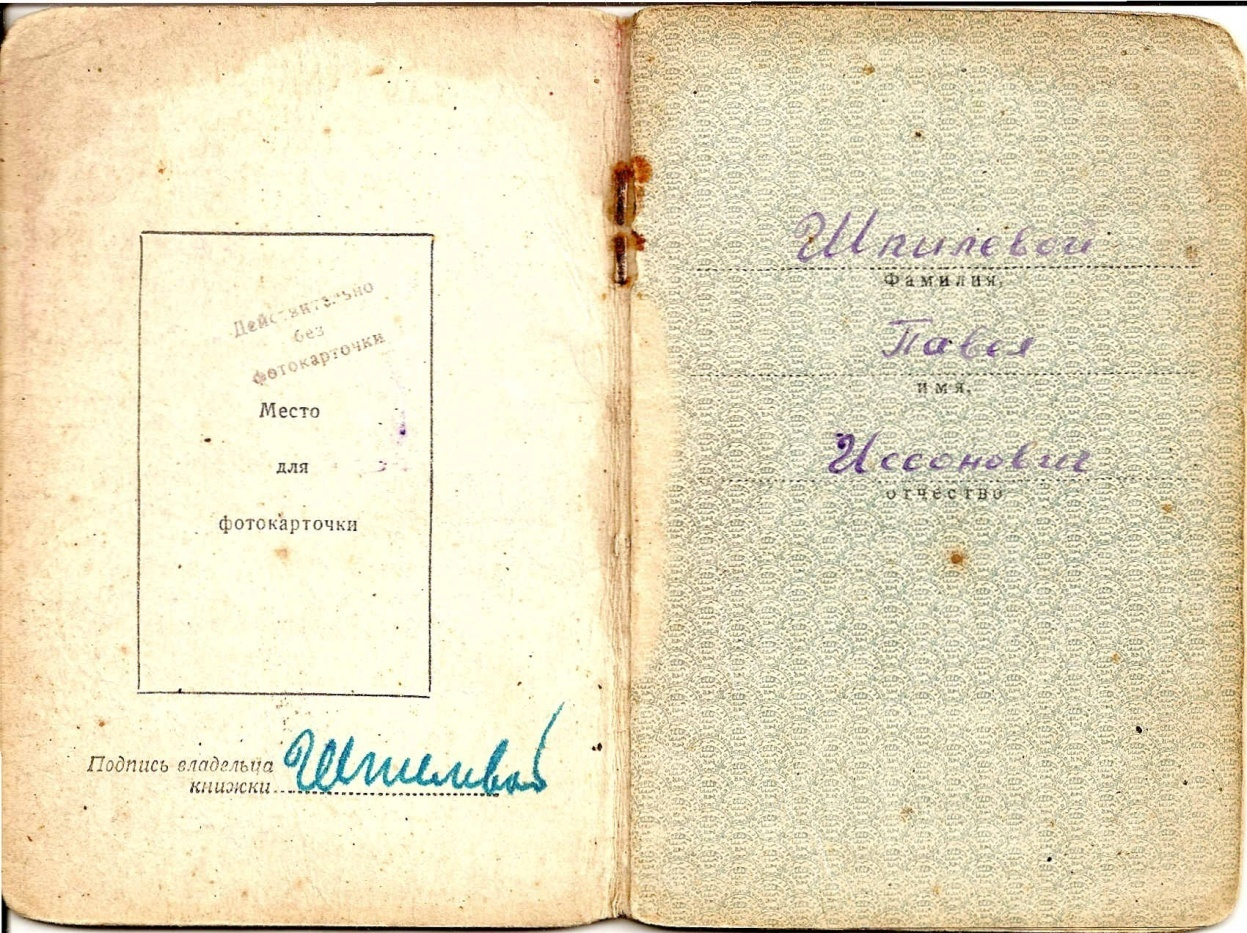 Действительно
без
фотокарточки
Место
для
фотокарточки
Подпись владельца
книжки Шпилевой
Шпилевой
Фамилия,
Павел
имя,
Иссонович
отчество